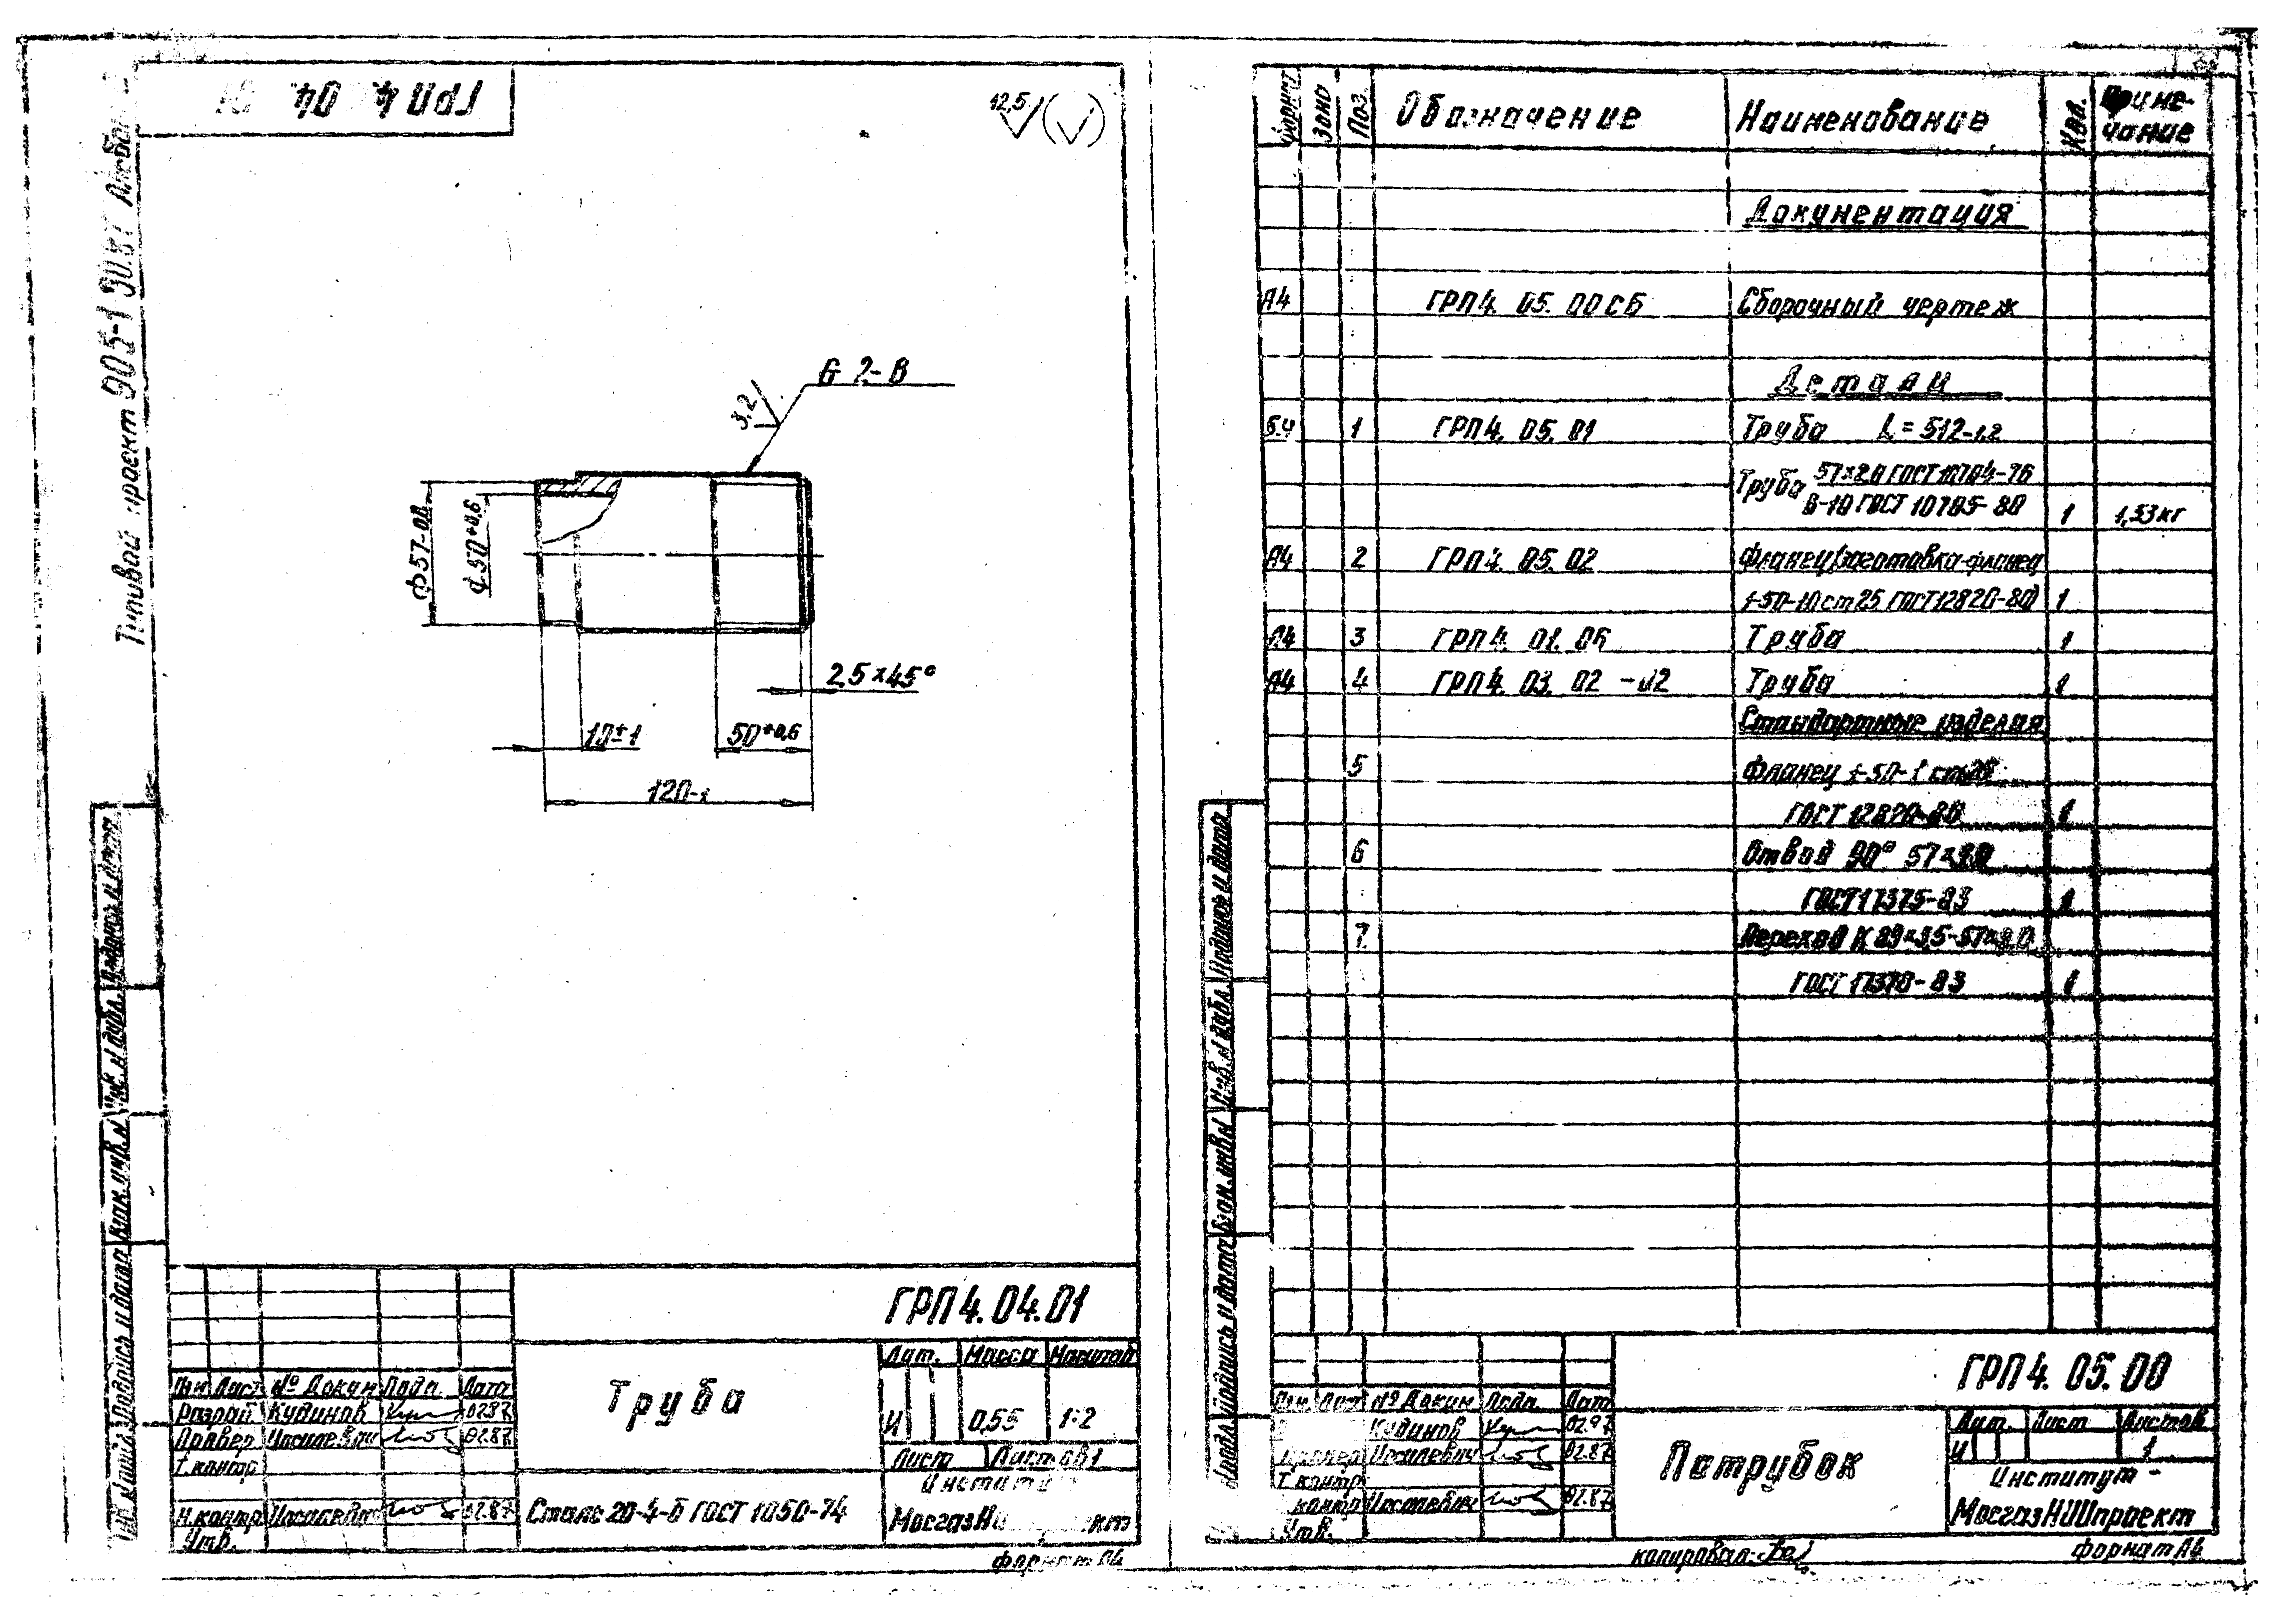 ГРП 4. 04. 01
12,5
Типовой проект 905-1-30.87 Альбом
G 2-В
3,2
ф57-0,8
ф50+0,6
2,5×45°
10±1
50+0,6
120-1
Подпись и дата
Инв. N дубл.
Взам. инв. N
Подпись и дата
ГРП 4. 04. 01
Лит. Масса Масштаб
И 0,55 1:2
Труба
Изм Лист № Докум Подп Дата
Разраб Кудинов 02.87
Провер Иосилевич 02.87
Т. контр
Н. контр Иосилевич 02.87
Утв.
Лист Листов 1
Институт
МосгазНИИпроект
Сталь 20-4-б ГОСТ 1050-74
формат А4
Формат Зона Поз. Обозначение Наименование Кол. Примечание
Документация
А4 ГРП 4. 05. 00 СБ Сборочный чертеж
Детали
Б.Ч 1 ГРП 4. 05. 01 Труба L=512-1,2
Труба 57×2,0 ГОСТ 10704-76
В-10 ГОСТ 10705-80 1 1,53 кг
А4 2 ГРП 4. 05. 02 Фланец (заготовка-фланец
1-50-10 ст25 ГОСТ 12820-80) 1
А4 3 ГРП 4. 01. 06 Труба 1
А4 4 ГРП 4. 03. 02 -02 Труба 1
Стандартные изделия
5 Фланец 1-50-1 ст25
ГОСТ 12820-80 1
6 Отвод 90° 57×3,0
ГОСТ 17375-83 1
7 Переход К 89×3,5-57×3,0
ГОСТ 17378-83 1
Подпись и дата
Инв. N дубл.
Взам. инв. N
Подпись и дата
ГРП 4. 05. 00
Изм Лист № Докум Подп Дата
Кудинов 02.87
Провер Иосилевич 02.87
Т контр
контр Иосилевич 02.87
Утв.
Патрубок
Лит. Лист Листов
И 1
Институт -
МосгазНИИпроект
копировал:
формат А4